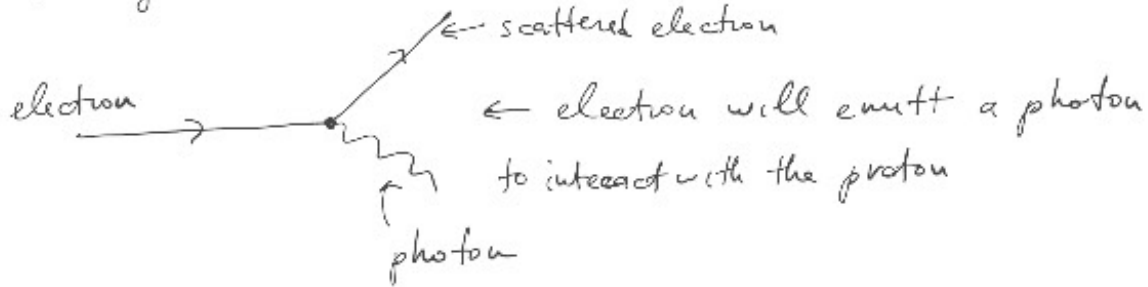 ← scattered electron
electron
← electron will emitt a photon
to interact with the proton
photon